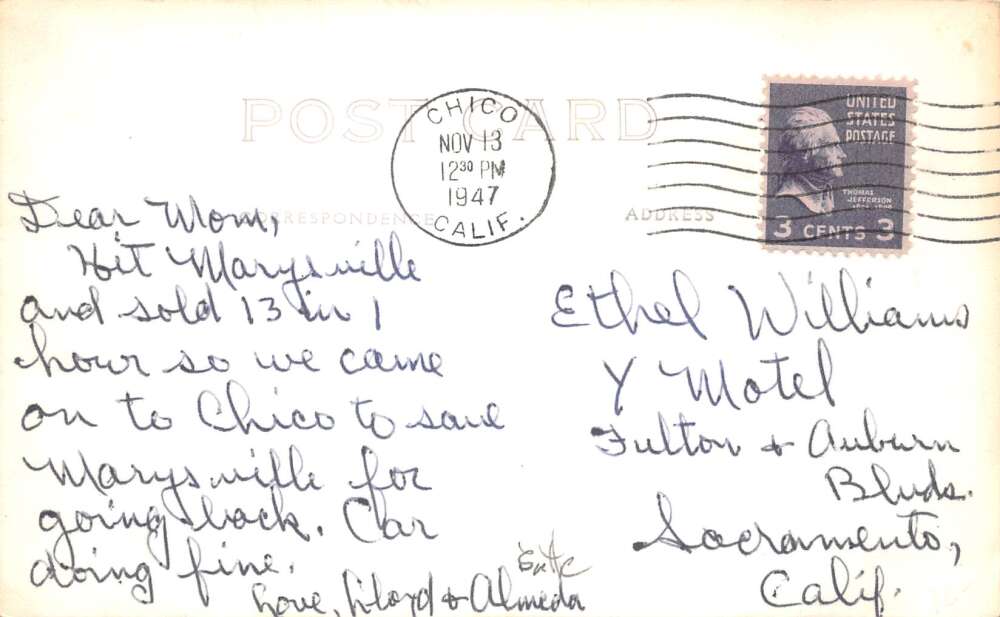 POST CARD
CHICO
NOV 13
12 30 PM
1947
CALIF.
UNITED
STATES
POSTAGE
THOMAS
JEFFERSON
3 CENTS 3
CORRESPONDENCE
ADDRESS
Dear Mom,
Hit Marysville
and sold 13 in 1
hour so we came
on to Chico to save
Marysville for
going back. Car
doing fine.
Love, Lloyd & Almeda
Ethel Williams
Y Motel
Fulton & Auburn
Blvds.
Sacramento,
Calif.